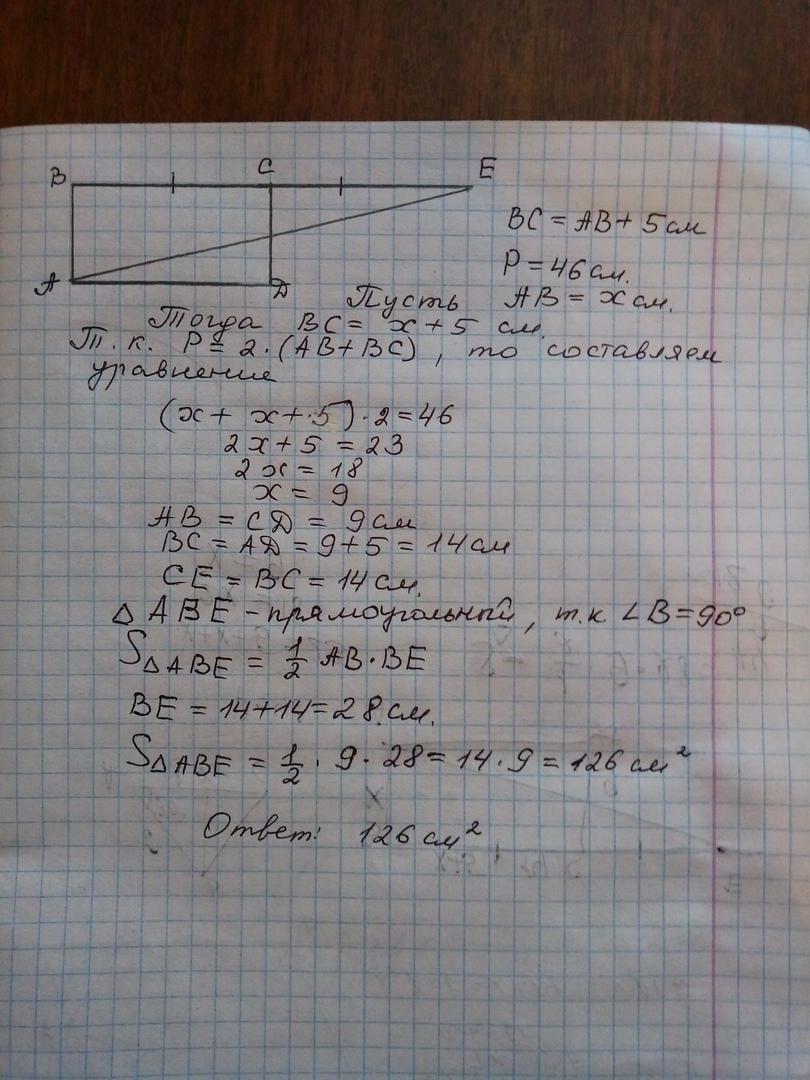 B C E
A D
BC = AB + 5 см
P = 46 см.
Пусть AB = x см.
Тогда BC = x + 5 см.
Т. к. P = 2 · (AB + BC), то составляем
уравнение
(x + x + 5) · 2 = 46
2x + 5 = 23
2x = 18
x = 9
AB = CD = 9 см
BC = AD = 9 + 5 = 14 см
CE = BC = 14 см.
△ ABE - прямоугольный, т.к ∠B = 90°
S△ABE = 1/2 AB · BE
BE = 14 + 14 = 28 см.
S△ABE = 1/2 · 9 · 28 = 14 · 9 = 126 см²
Ответ: 126 см²